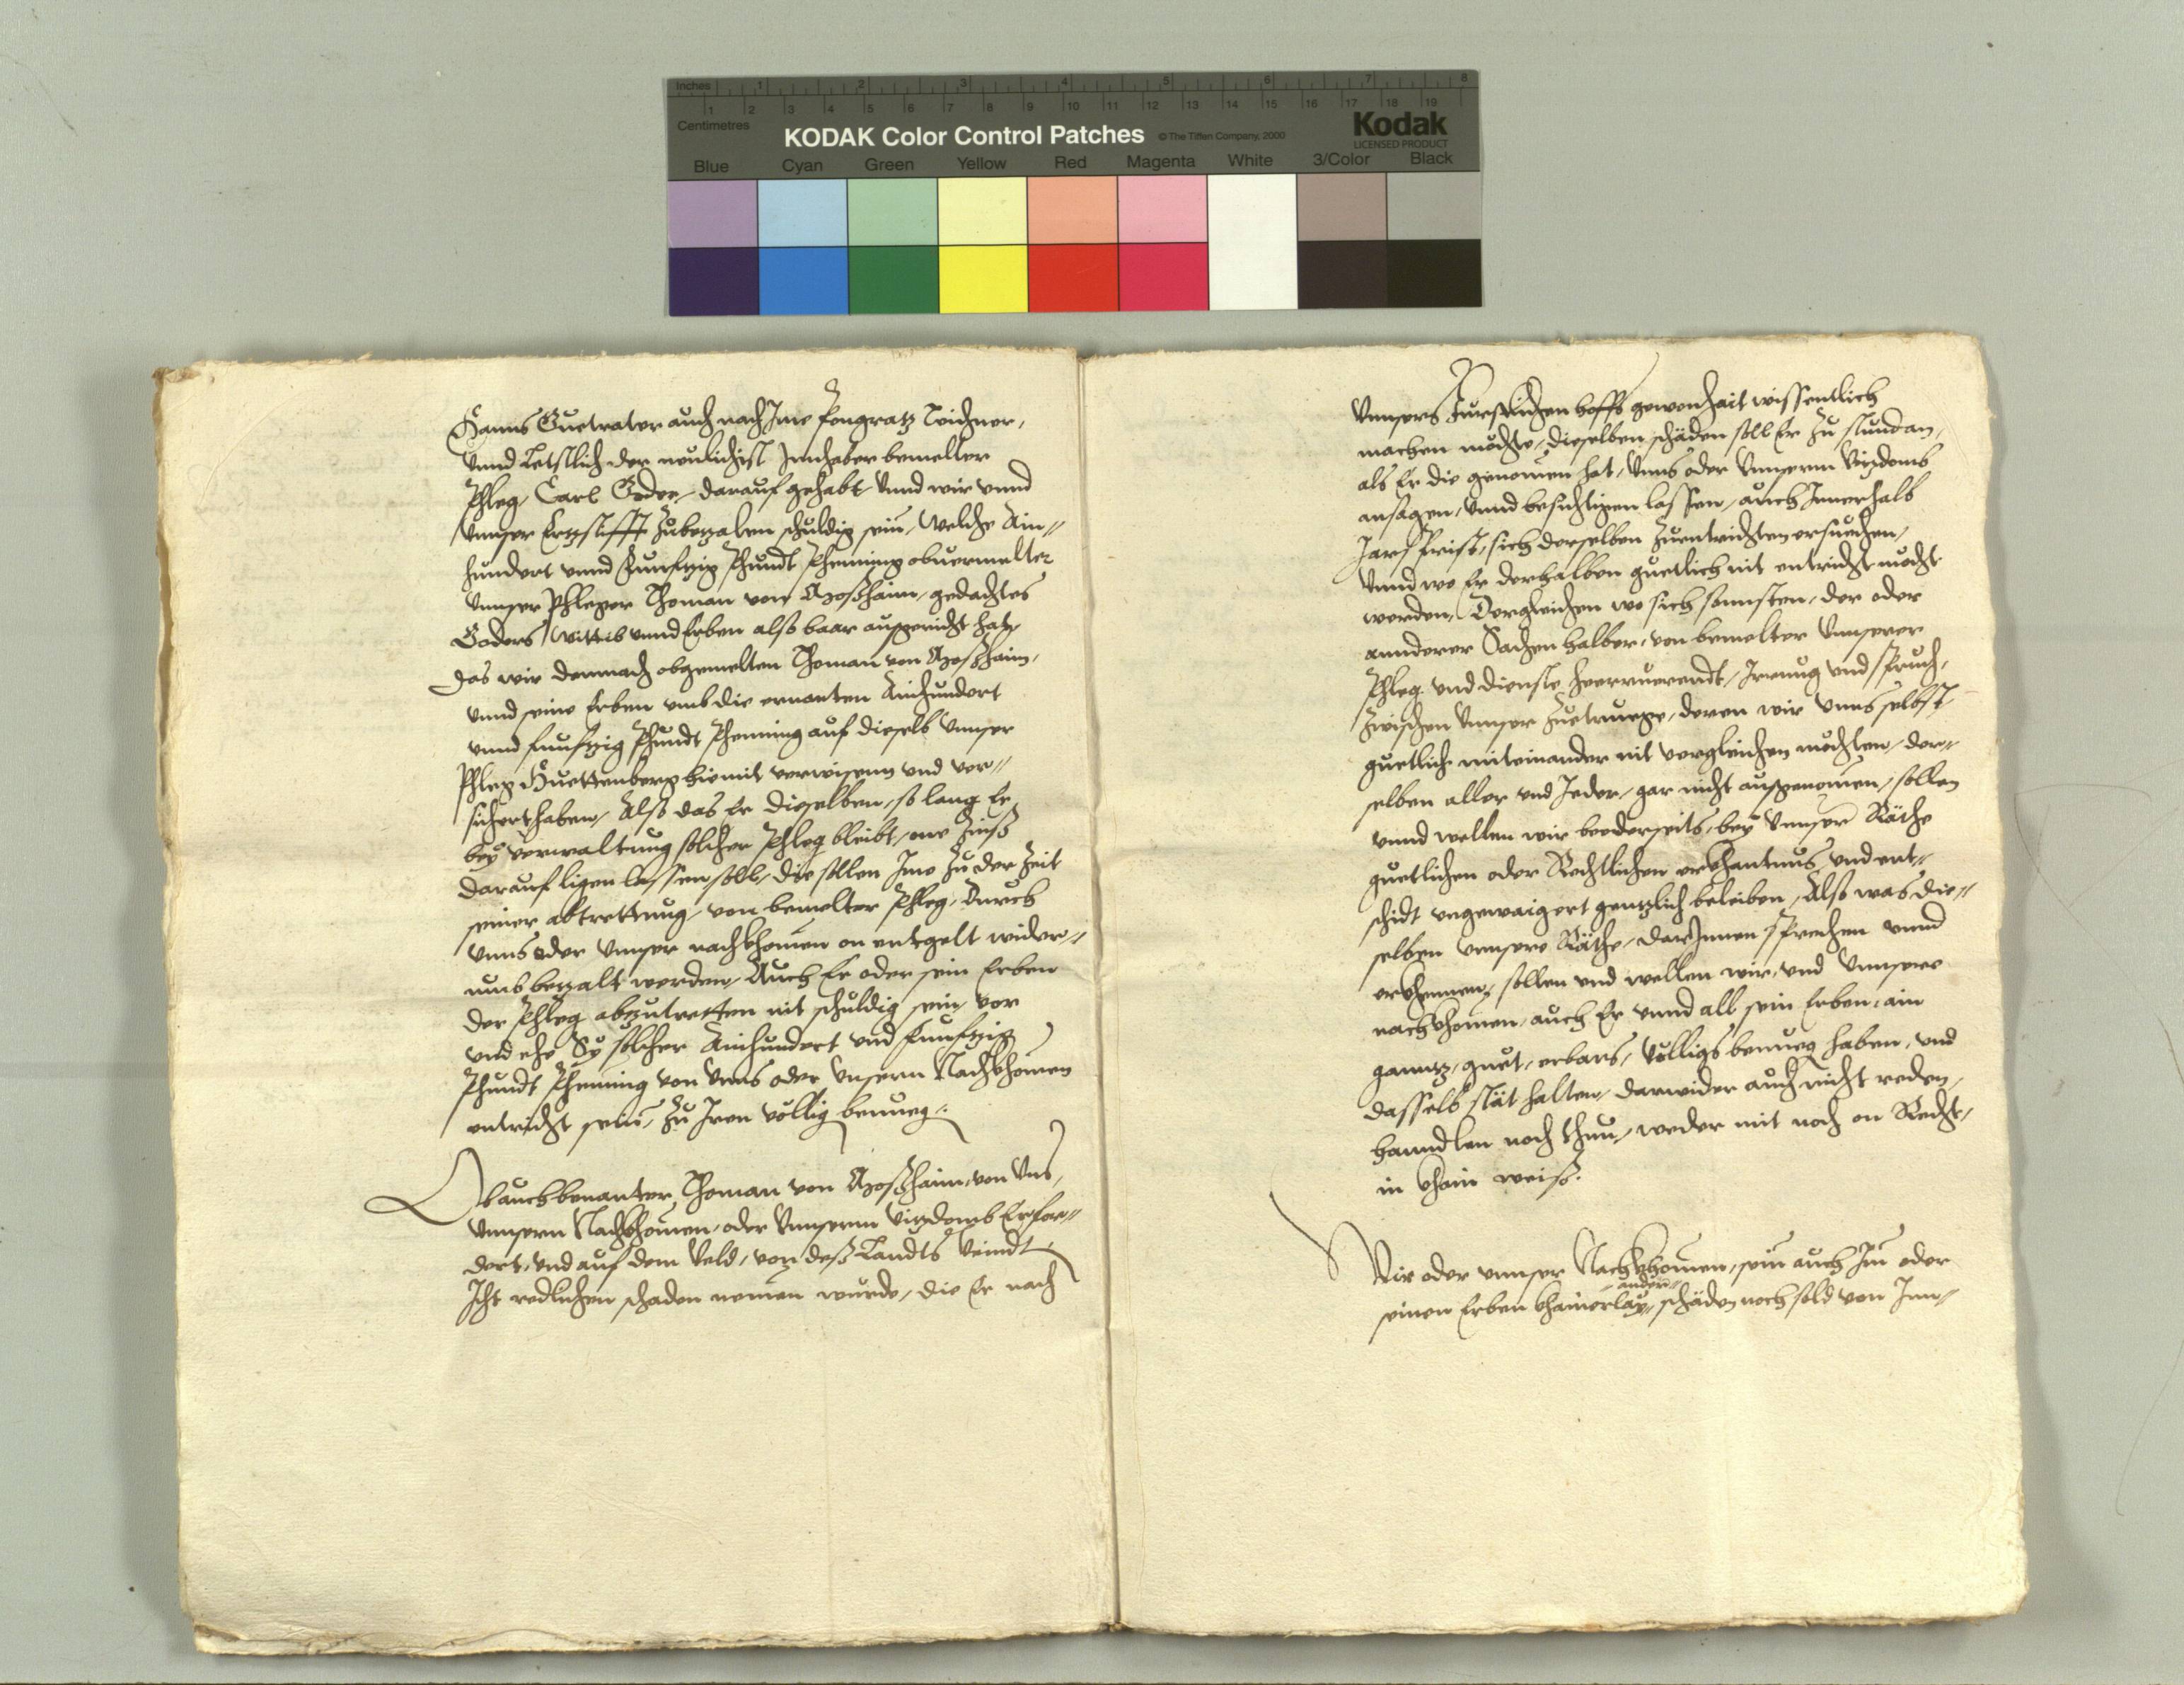 Inches 1 2 3 4 5 6 7 8
1 2 3 4 5 6 7 8 9 10 11 12 13 14 15 16 17 18 19
Centimetres
KODAK Color Control Patches © The Tiffen Company, 2000
Kodak
LICENSED PRODUCT
Blue Cyan Green Yellow Red Magenta White 3/Color Black
Hanns Guetrater auch nach Ime Pongratz Teichner,
Vnnd Letstlich der neulichist Innhaber bemelter
Phleg, Carl Goder, darauf gehabt, Vnnd wir vnnd
Vnnser Ertzstifft Zubezalen schuldig sein, Welche Ain-
hundert vnnd Funftzig Phundt Phenning obuermelter
Vnnser Phleger Thoman von Moßhaim, gedachtes
Goders Wittib vnnd Erben also baar ausgericht hat,
Das wir demnach obgemelten Thoman von Moßhaim,
vnnd seine Erben vmb die ernanten Ainhundert
vnnd funfftzig Phundt Phenning auf dieselb Vnnser
Phleg Huettenberg hiemit verwisenn vnd ver-
sichert haben, Also das Er dieselben, so lang Er
bey Verwaltung solcher Phleg bleibt, one Zinß
darauf ligen lassen soll, die sollen Ime Zu der Zeit
seiner abtrettung, von bemelter Phleg, Durch
Vnns oder Vnnser nachkhomen on entgelt wider-
umb bezalt werden, Auch Er oder sein Erben
der Phleg abzutretten nit schuldig sein, vor
vnd ehe Sy solcher Ainhundert vnd funfftzig
Phundt Phenning von Vnns oder Vnsern Nachkhomen
entricht sein, Zu Iren völlig benueg.
Ob auch benanter Thoman von Moßhaim, von Vns,
Vnnsern Nachkhomen, oder Vnnserm Vitzdomb Erfor-
dert, vnd auf dem Veld, von deß Landts Veindt
Icht redlichen schaden nemen wurde, die Er nach
Vnnsers Furstlichen hoffs gewonhait wissentlich
machen möchte, dieselben schäden soll Er Zu stund an,
als Er die genomen hat, Vnns oder Vnnserm Vitzdomb
ansagen, Vnnd besichtigen lassen, auch Innerhalb
Jars frist, sich derselben Zuentrichten ersuechen,
Vnnd wo Er derhalben guetlich nit entricht möcht
werden, Dergleichen wo sich sonnsten, der oder
annderer Sachen halber, von bemelter Vnnserer
Phleg vnd dienste herruerendt, Irrung vnd Spruch,
Zwischen Vnnser Zuetruege, deren wir Vnns selbst
guetlich miteinander nit vergleichen möchten, der-
selben aller vnd Jeder, gar nicht ausgenomen, sollen
vnnd wellen wir bederseits, bey Vnnser Räthe
guetlichen oder Rechtlichen erkhantnus vnd ent-
schidt vngewaigert gentzlich beleiben, Also was die-
selben vnnsere Räthe, darInnen Sprechen vnnd
erkhennen, sollen vnd wellen wir, vnd Vnnsere
nachkhomen, auch Er vnnd all sein Erben, ain
ganntz, guet, erbars, Völligs benueg haben, vnd
dasselb stät halten, darwider auch nicht reden,
hanndlen noch thun, weder mit noch on Recht,
in khain weiß.
Wir oder vnnser Nachkhomen, sein auch Im oder
ander
seinen Erben khainerlay, schäden noch sold von Inn-